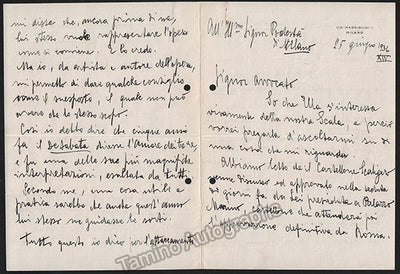 VIA MASSIMIANO
MILANO
All'Ill.mo Signor Podestà
di Milano
25 giugno 1936
XIV°
Signor avvocato
So che Ella s'interessa
vivamente della nostra Scala, e perciò
vorrei pregarla d'ascoltarmi su di
una cosa che mi riguarda.
Abbiamo letto del Cartellone Scaligero
come discusso ed approvato nella seduta
di giorni fa da lei presieduta a Palazzo
Marino, cartellone che attenderà poi
l'approvazione definitiva da Roma.
mi disse che, ancora prima di me,
lui stesso vuole rappresentare l'opera
come si conviene. E lo credo.
Ma io, da artista e autore dell'opera,
mi permetto di dare qualche consiglio
come il suesposto, il quale non può
avere che lo stesso scopo.
Così io debbo dire che cinque anni
fa il De Sabata diresse l'Amore dei tre re
e fu una delle sue più magnifiche
interpretazioni, esaltata da tutti.
Secondo me, una cosa utile e
pratica sarebbe che anche quest'anno
lui stesso ne guidasse le sorti.
Tutto questo io dico per l'attaccamento
Tamino Autographs